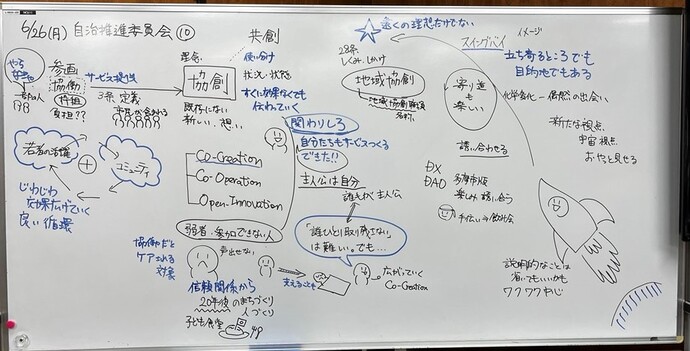 6/26(月) 自治推進委員会 ⑩
参画
協働
サービス提供
3条 定義
市民が含まれる
負担??
若者の活躍
+
コミュニティ
じわじわ
効果広げていく
良い循環
共創
理念
使い分け
協創
状況・状態
すぐに効果なくても
伝わっていく
既存にない
新しい、想い
Co-Creation
Co-Operation
Open.Innovation
弱者・参加できない人
協働だと
ケアされる
対象
声出せない
信頼関係から
20年後のまちづくり
人づくり
子ども食堂
支えること
遠くの理想だけでない
28条
しくみ、しかけ
地域協創
関わりしろ
自分たちもサービスつくる
できた!!
主人公は自分
誰もが主人公
「誰ひとり取り残さない」
は難しい。でも…
広がっていく
Co-Creation
スイングバイ
イメージ
立ち寄るところでも
目的地でもある
寄り道
も
楽しい
化学変化 - 偶然の出会い
新たな視点
宇宙視点
おやっと見せる
誘い合わせる
DX
DAO
多摩市版
楽しみ 誘い合う
説明的なことは
省いてもいいかも
ワクワク感じ